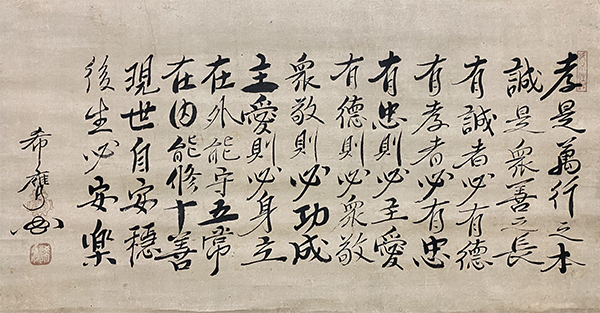 孝是萬行之本
誠是衆善之長
有誠者必有德
有孝者必有忠
有忠則必主愛
有德則必衆敬
衆敬則必功成
主愛則必身立
在外能守五常
在内能修十善
現世自安穏
後生必安楽
希膺